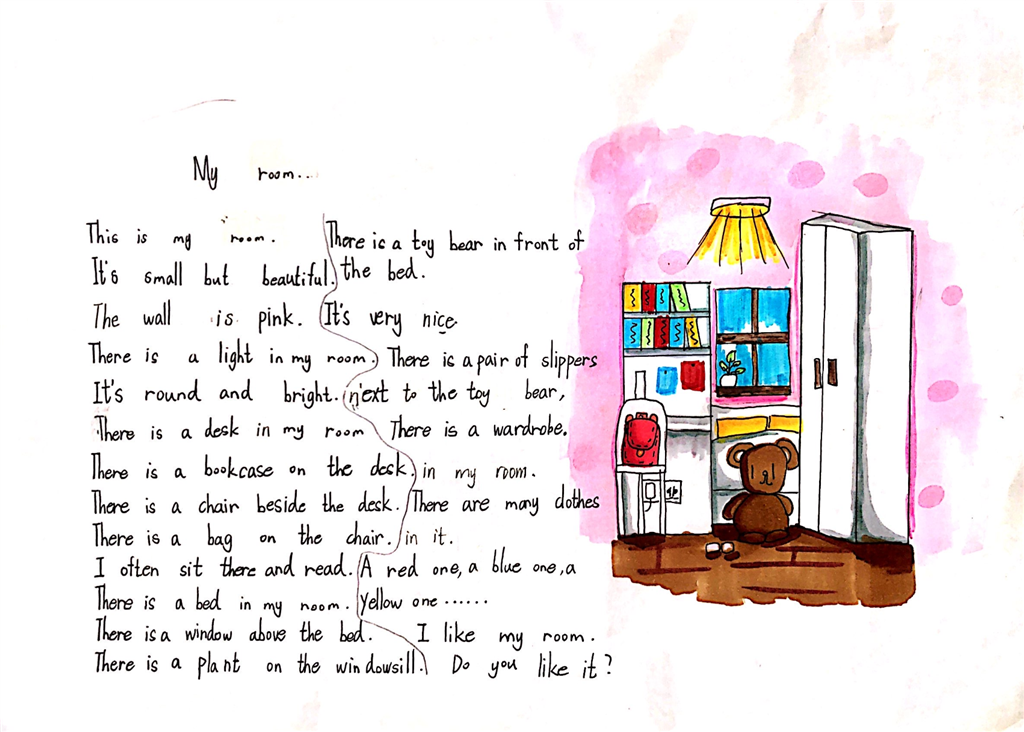 My room...
This is my room.
It's small but beautiful.
The wall is pink.
There is a light in my room.
It's round and bright.
There is a desk in my room
There is a bookcase on the desk.
There is a chair beside the desk.
There is a bag on the chair.
I often sit there and read.
There is a bed in my room.
There is a window above the bed.
There is a plant on the windowsill.
There is a toy bear in front of
the bed.
It's very nice.
There is a pair of slippers
next to the toy bear,
There is a wardrobe.
in my room.
There are many clothes
in it.
A red one, a blue one, a
yellow one ......
I like my room.
Do you like it?